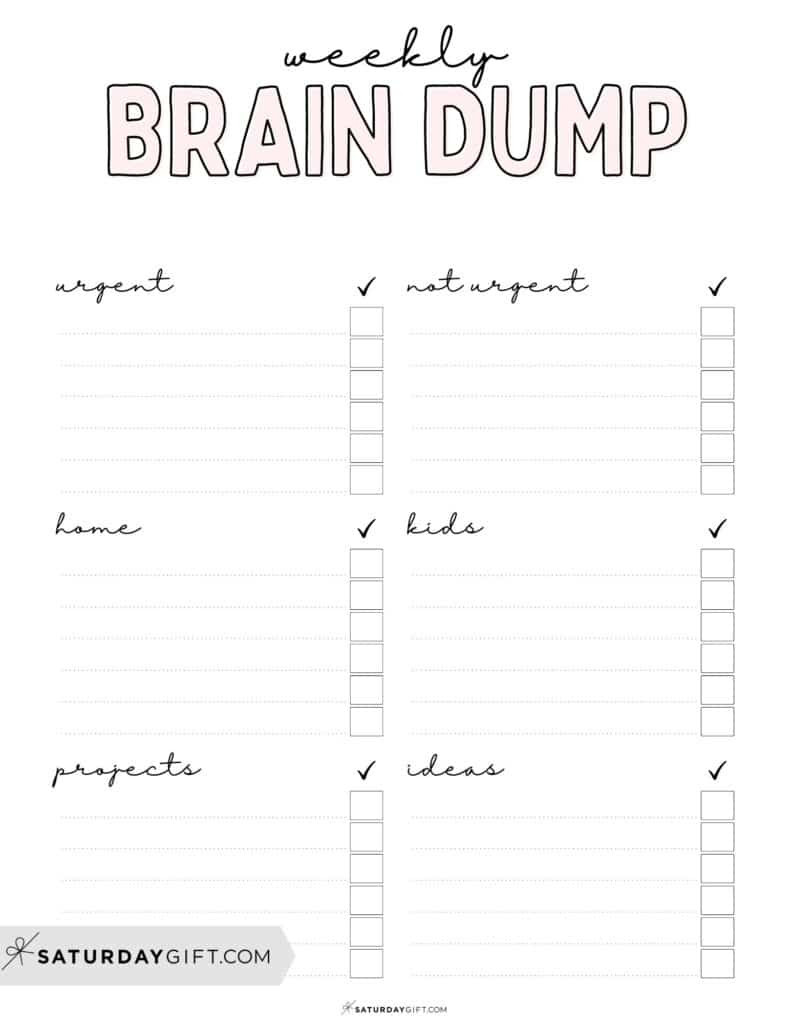 weekly
BRAIN DUMP
urgent ✓
not urgent ✓
home ✓
kids ✓
projects ✓
ideas ✓
SATURDAYGIFT.COM
SATURDAYGIFT.COM